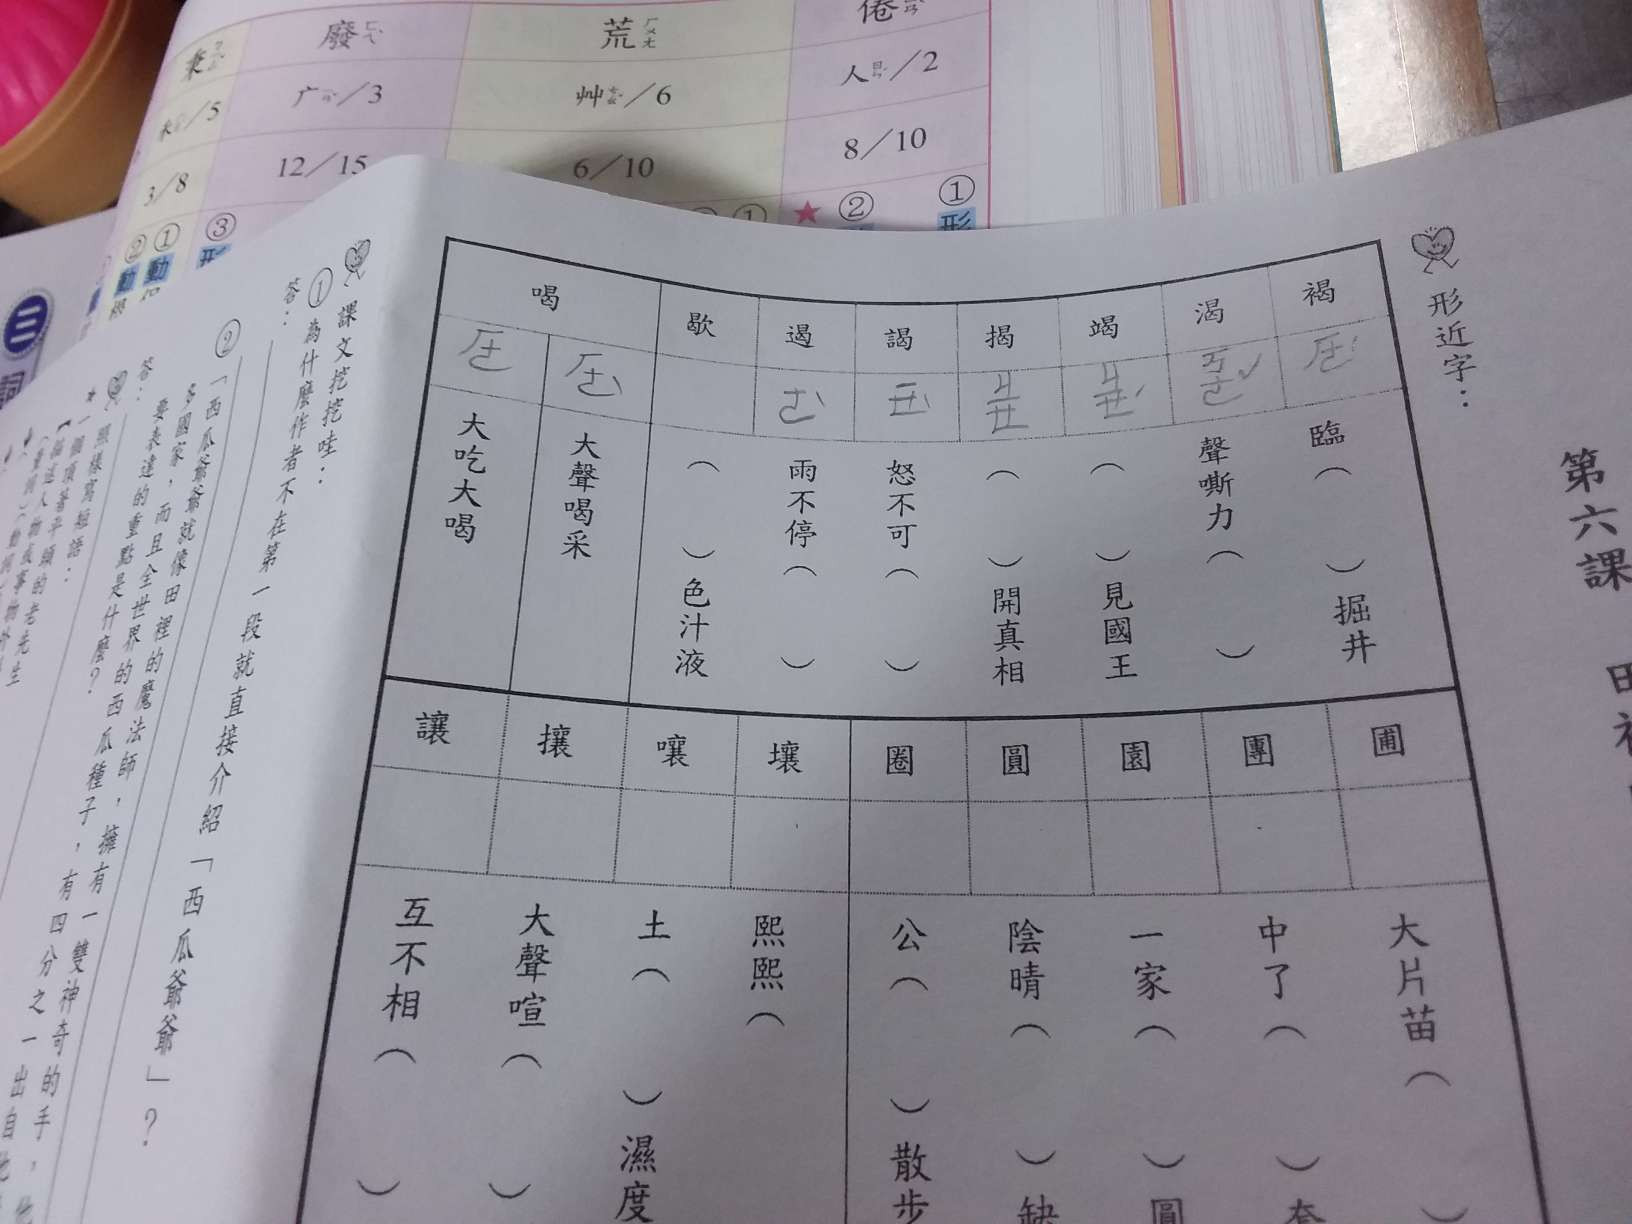 形近字：
褐 ㄏㄜˊ 臨（ ）掘井
渴 ㄎㄜˇ 聲嘶力（ ）
竭 ㄐㄧㄝˊ（ ）見國王
揭 ㄐㄧㄝ（ ）開真相
謁 ㄧㄝˋ 怒不可（ ）
遏 ㄜˋ 雨不停（ ）
歇（ ）色汁液
喝
ㄏㄜˋ 大聲喝采
ㄏㄜ 大吃大喝
圃 大片苗（ ）
團 中了（ ）
園 一家（ ）圓
圓 陰晴（ ）缺
圈 公（ ）散步
壤 熙熙（
嚷 土（ ）濕度
攘 大聲喧（ ）
讓 互不相（ ）
課文挖挖哇：
①為什麼作者不在第一段就直接介紹「西瓜爺爺」？
答：
②「西瓜爺爺就像田裡的魔法師，擁有一雙神奇的手，
多國家，而且全世界的西瓜種子，有四分之一出自他
要表達的重點是什麼？
答：
照樣寫短語：
★一個頂著平頭的老先生
第六課
倦
人／2
8／10
①形
★②
荒 ㄏㄨㄤ
艸ㄘㄠˇ／6
6／10
①
廢 ㄈㄟˋ
广ㄧㄢˇ／3
12／15
③形
／5
3／8
①動
②動
三
詞